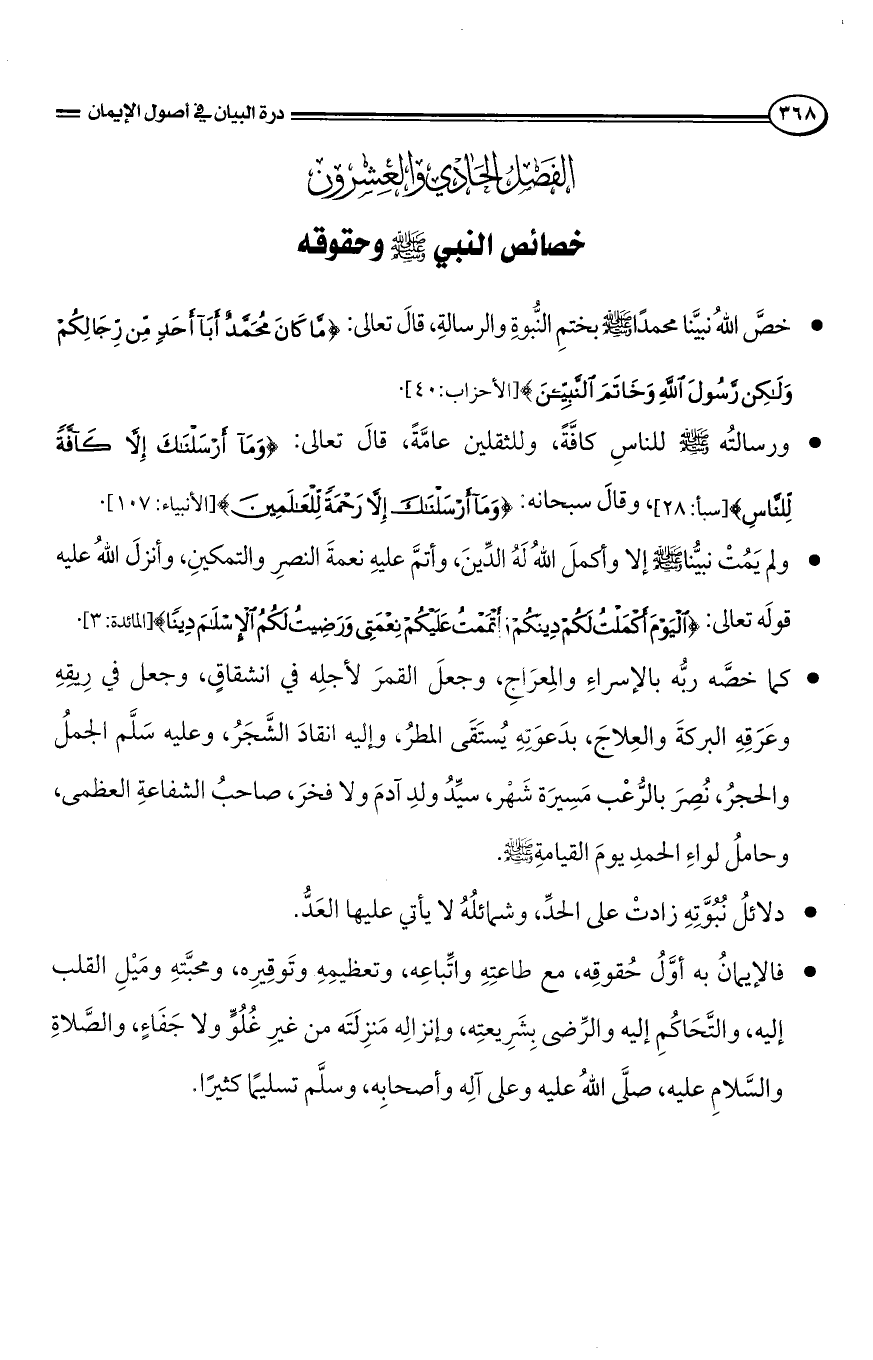 ٣٦٨ درة البيان في أصول الإيمان
الفَصْلُ الحَادِي وَالعِشْرُونَ
خصائص النبي ﷺ وحقوقه
• خصَّ اللهُ نبيَّنا محمدًا ﷺ بختمِ النُّبوةِ والرسالةِ، قالَ تعالى: ﴿مَّا كَانَ مُحَمَّدٌ أَبَآ أَحَدٍ مِّن رِّجَالِكُمْ
وَلَٰكِن رَّسُولَ ٱللَّهِ وَخَاتَمَ ٱلنَّبِيِّـۧنَ﴾[الأحزاب: ٤٠].
• ورسالتُه ﷺ للناسِ كافَّةً، وللثقلين عامَّةً، قالَ تعالى: ﴿وَمَآ أَرْسَلْنَٰكَ إِلَّا كَآفَّةً
لِّلنَّاسِ﴾[سبأ: ٢٨]، وقالَ سبحانه: ﴿وَمَآ أَرْسَلْنَٰكَ إِلَّا رَحْمَةً لِّلْعَٰلَمِينَ﴾[الأنبياء: ١٠٧].
• ولم يَمُتْ نبيُّنا ﷺ إلا وأكملَ اللهُ لَهُ الدِّينَ، وأتمَّ عليهِ نعمةَ النصرِ والتمكينِ، وأنزلَ اللهُ عليه
قولَه تعالى: ﴿ٱلْيَوْمَ أَكْمَلْتُ لَكُمْ دِينَكُمْ وَأَتْمَمْتُ عَلَيْكُمْ نِعْمَتِى وَرَضِيتُ لَكُمُ ٱلْإِسْلَٰمَ دِينًا﴾[المائدة: ٣].
• كما خصَّه ربُّه بالإسراءِ والمِعرَاجِ، وجعلَ القمرَ لأجلِه في انشقاقٍ، وجعل في رِيقِهِ
وعَرَقِهِ البركةَ والعِلاجَ، بدَعوَتِهِ يُستَقَى المطرُ، وإليه انقادَ الشَّجَرُ، وعليه سَلَّم الجملُ
والحجرُ، نُصِرَ بالرُّعْب مَسِيرَة شَهْر، سيِّدُ ولدِ آدمَ ولا فخرَ، صاحبُ الشفاعةِ العظمى،
وحاملُ لواءِ الحمدِ يومَ القيامةِ ﷺ.
• دلائلُ نُبُوَّتِهِ زادتْ على الحدِّ، وشمائلُهُ لا يأتي عليها العَدُّ.
• فالإيمانُ به أوَّلُ حُقوقِه، مع طاعتِهِ واتِّباعِه، وتعظيمِهِ وتَوقيرِه، ومحبَّتِهِ ومَيْلِ القلب
إليه، والتَّحَاكُمِ إليه والرِّضى بِشَرِيعتِه، وإنزالِه مَنزِلَتَه من غيرِ غُلُوٍّ ولا جَفَاءٍ، والصَّلاةِ
والسَّلامِ عليه، صلَّى اللهُ عليه وعلى آلِهِ وأصحابِه، وسلَّم تسليمًا كثيرًا.